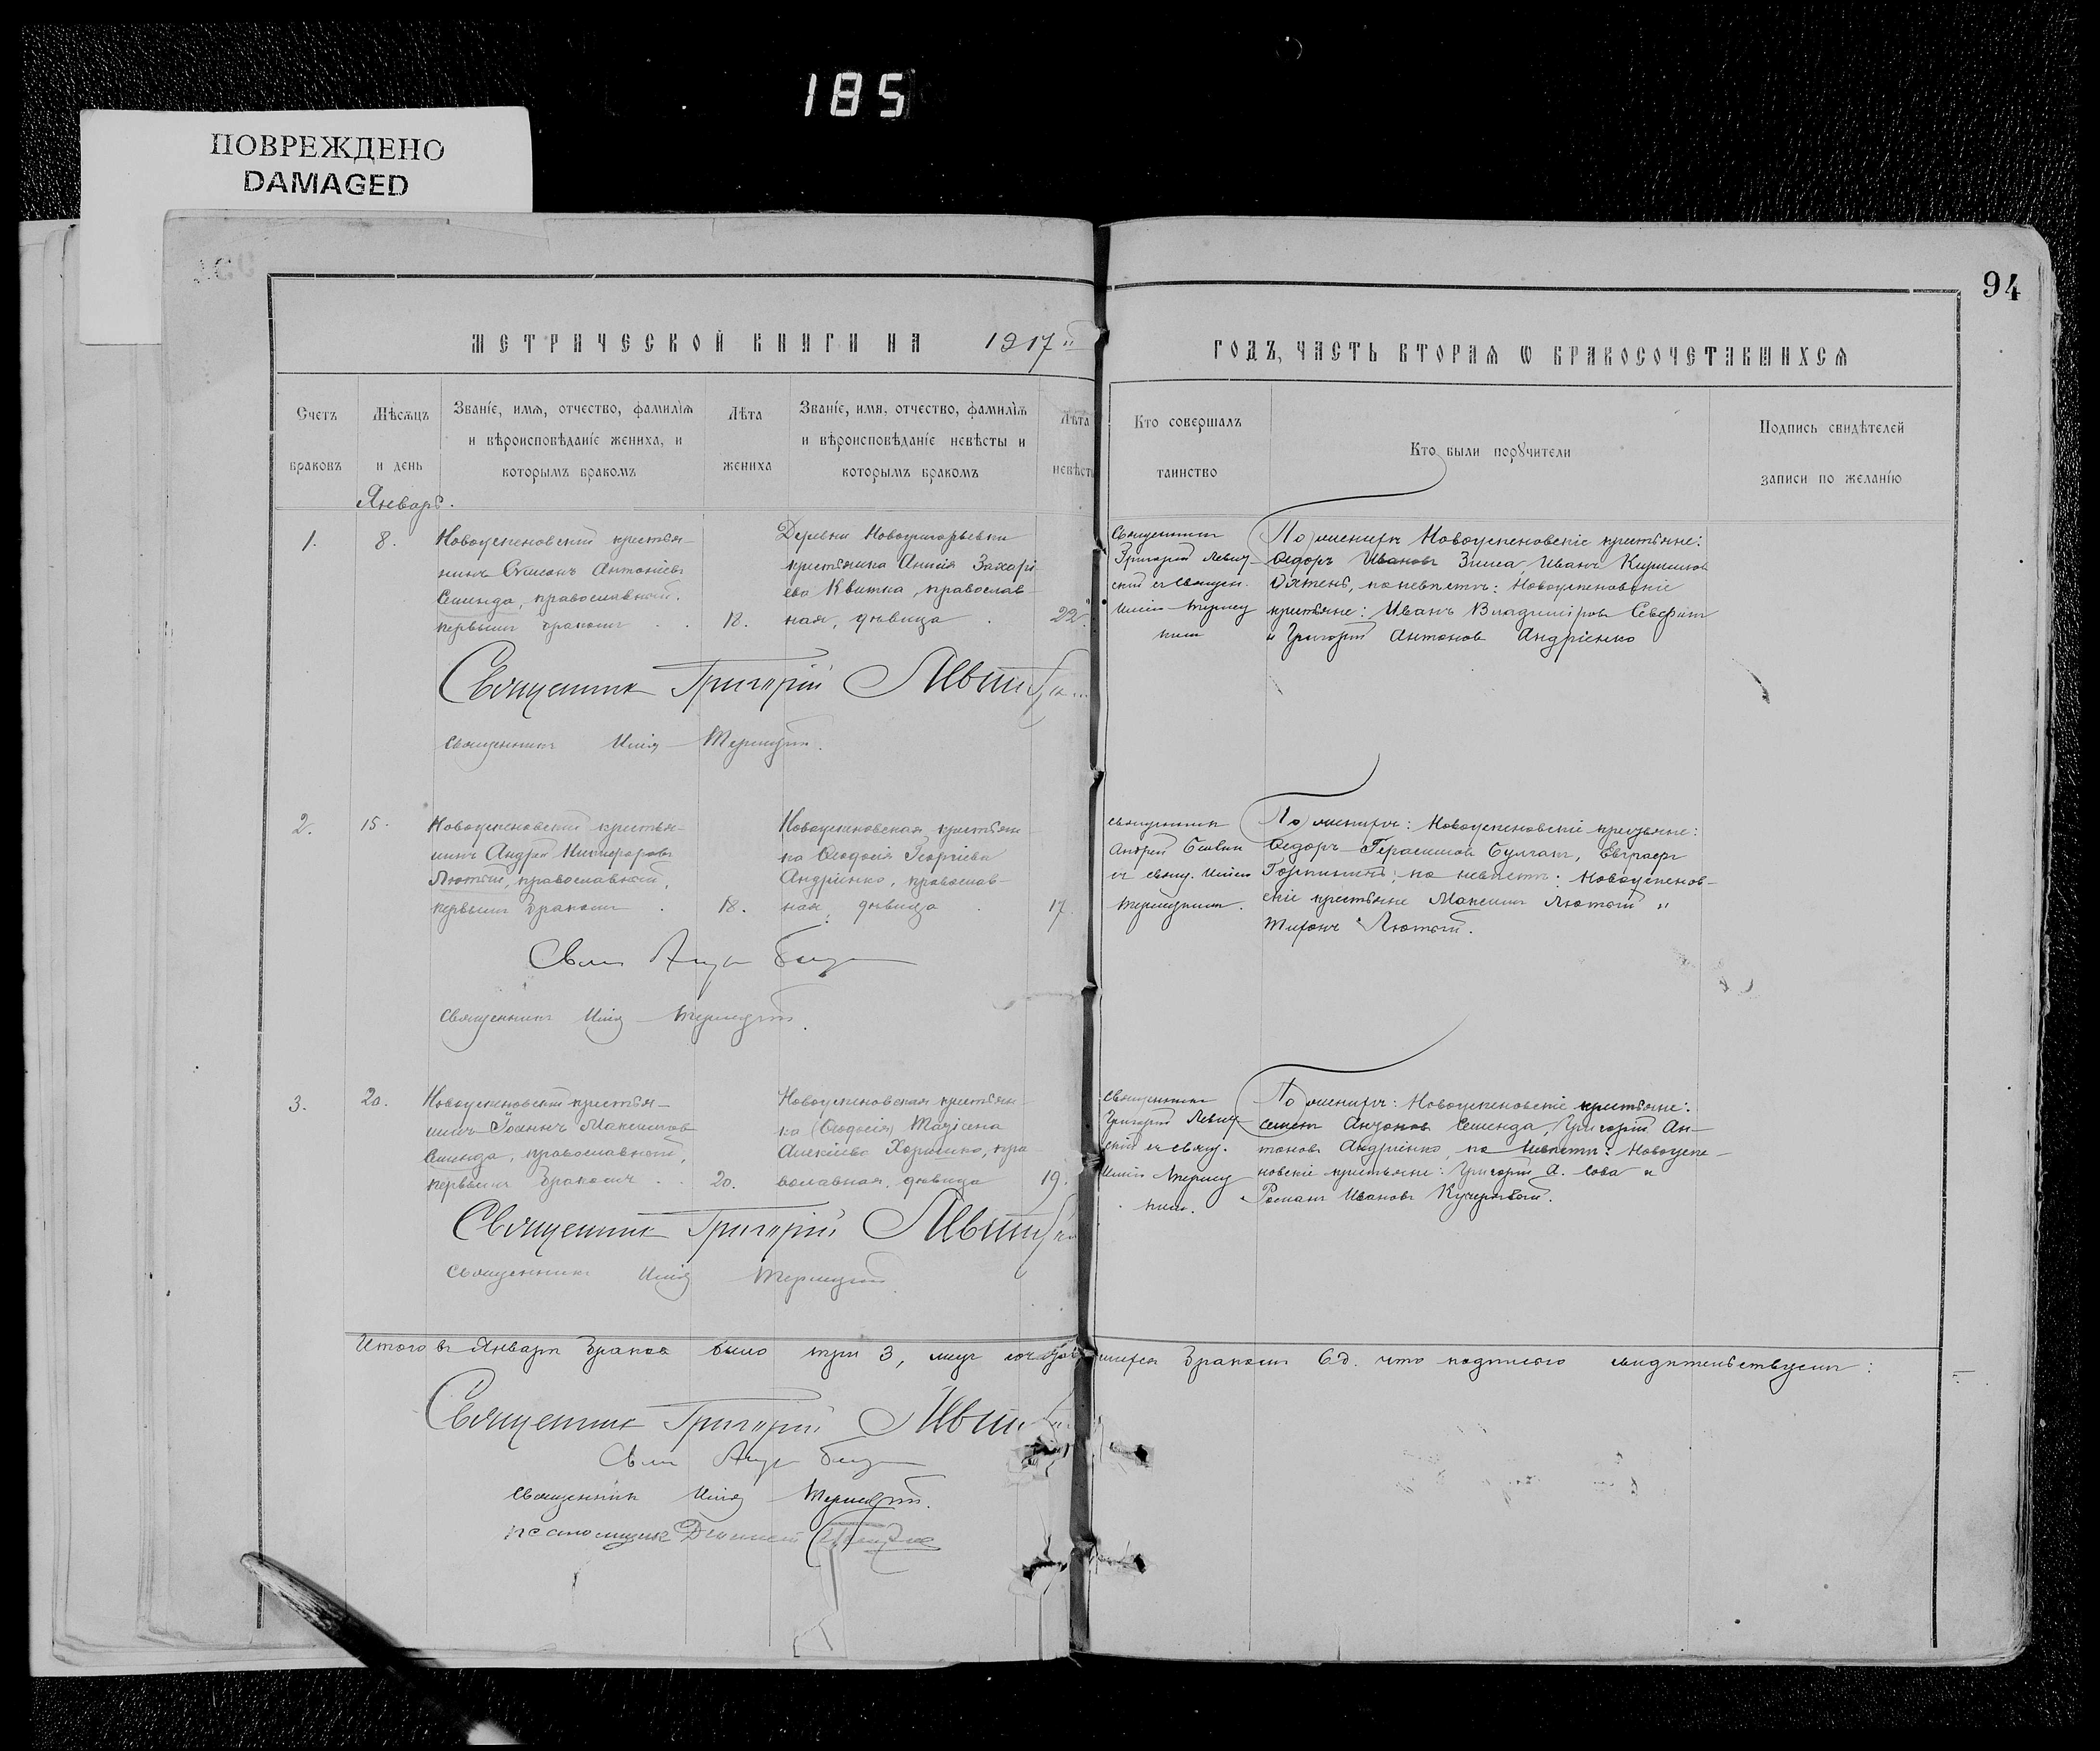 185
ПОВРЕЖДЕНО
DAMAGED
94
МЕТРИЧЕСКОЙ КНИГИ НА 1917 й
ГОДЪ, ЧАСТЬ ВТОРАЯ Ѡ БРАКОСОЧЕТАВШИХСЯ
Счетъ браковъ
Мѣсяцъ и день
Званіе, имя, отчество, фамилія
и вѣроисповѣданіе жениха, и
которымъ бракомъ
Лѣта жениха
Званіе, имя, отчество, фамилія
и вѣроисповѣданіе невѣсты и
которымъ бракомъ
Лѣта невѣсты
Кто совершалъ
таинство
Кто были порꙋчители
Подпись свидѣтелей
записи по желанію
Январь.
1.
8.
Новоуспеновскій крестья-
нинъ Симеонъ Антоніевъ
Семинда, православный,
первымъ бракомъ
18.
Деревни Новогригорьевки
крестьянка Анна Захарі-
ева Квитка, православ-
ная, дѣвица
22.
Священникъ
Григорій Левит-
скій съ священ.
Иліею Терлец-
кимъ
По женихѣ Новоуспеновскіе крестьяне:
Ѳедоръ Ивановъ Зміса, Иванъ
по невѣстѣ: Новоуспеновскіе
крестьяне: Иванъ Владиміровъ
и Григорій Антоновъ Андріенко
Священникъ Григорій Левитскій
Священникъ Илія Терлецкій.
2.
15.
Новоуспеновскій крестья-
нинъ Андрей Никифоровъ
Лютый, православный,
первымъ бракомъ
18.
Новоуспеновская крестьян-
ка Ѳеодосія Георгіева
Андріенко, православ-
ная, дѣвица
17
священникъ
Андрей
съ свящ. Иліею
Терлецкимъ.
По женихѣ: Новоуспеновскіе крестьяне:
Ѳедоръ Герасимовъ Булгакъ, Евграфъ
по невѣстѣ: Новоуспенов-
скіе крестьяне Максимъ Лютый и
Тихонъ Лютый.
Свящ. Андрей
Священникъ Илія Терлецкій.
3.
20.
Новоуспеновскій крестья-
нинъ Іоаннъ Максимовъ
Семинда, православный,
первымъ бракомъ
20.
Новоуспеновская крестьян-
ка (Ѳеодосія) Таисія
Алексіева Хоменко, пра-
вославная, дѣвица
19.
священникъ
Григорій Левит-
скій съ свящ.
Иліею Терлец-
кимъ.
По женихѣ: Новоуспеновскіе крестьяне:
Семенъ Антоновъ Семинда, Григорій Ан-
тоновъ Андріенко, по невѣстѣ: Новоуспе-
новскіе крестьяне: Григорій А. Сова и
Романъ Ивановъ Кучерявый.
Священникъ Григорій Левитскій
Священникъ Илія Терлецкій
Итого въ Январѣ браковъ было три 3, лицъ сочетавшихся бракомъ 6. что подписью свидѣтельствуемъ:
Священникъ Григорій Левитскій
Свящ. Андрей
Священникъ Илія Терлецкій.
псаломщикъ